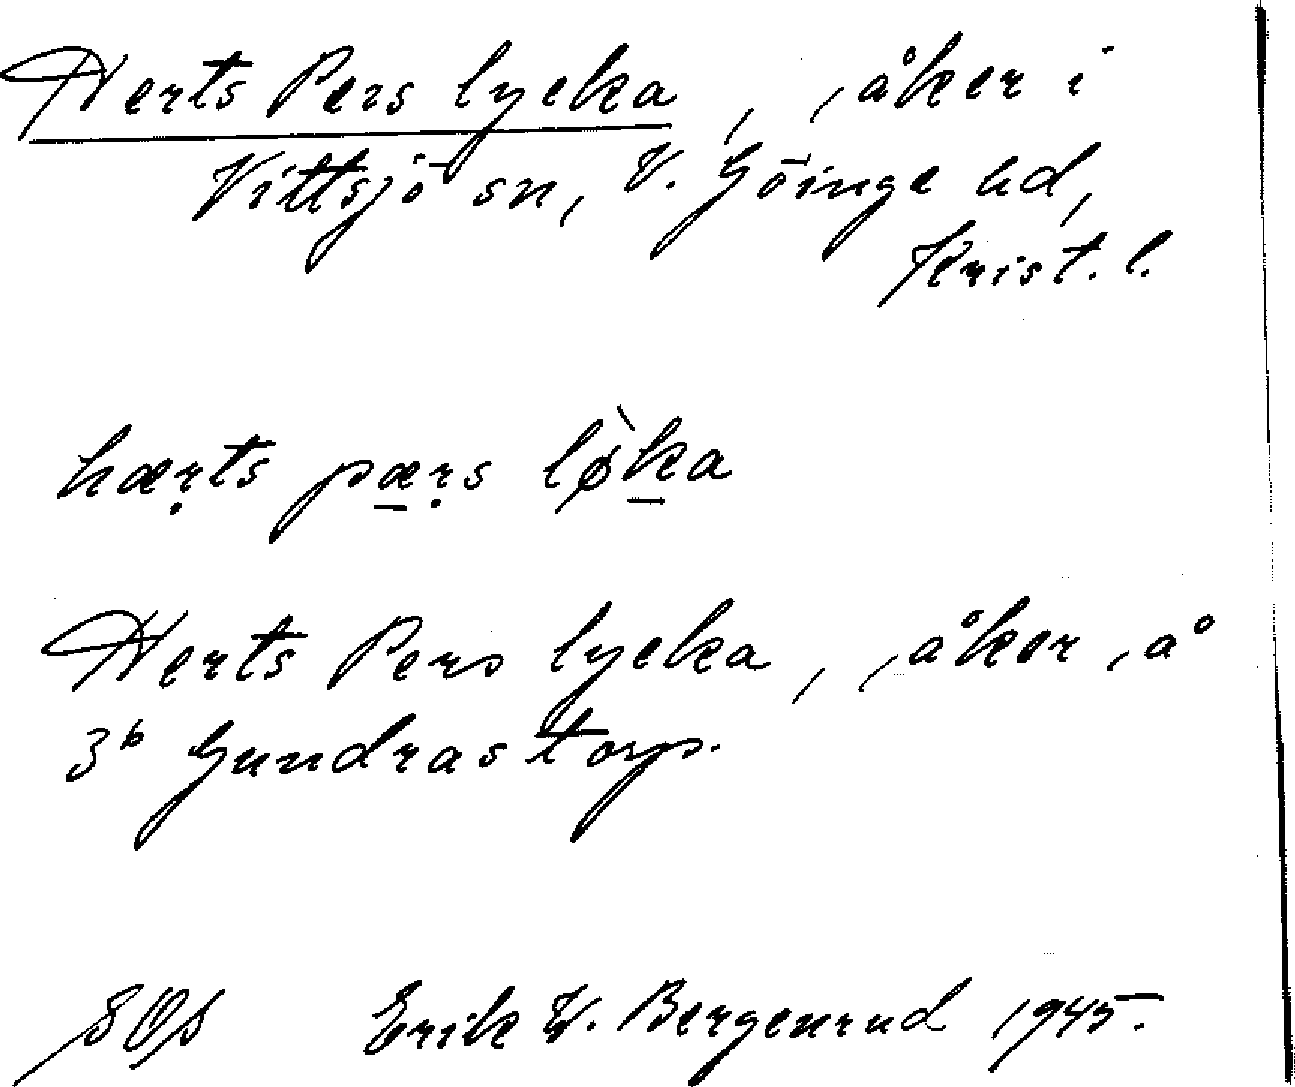 Herts Pers lycka, åker i
Vittsjö sn, V. Göinge hd,
Krist. l.
hærts pærs lø̀ka
Herts Pers lycka, åker, å
3b Gundrastorp.
SOS Erik W. Bergenrud 1945.